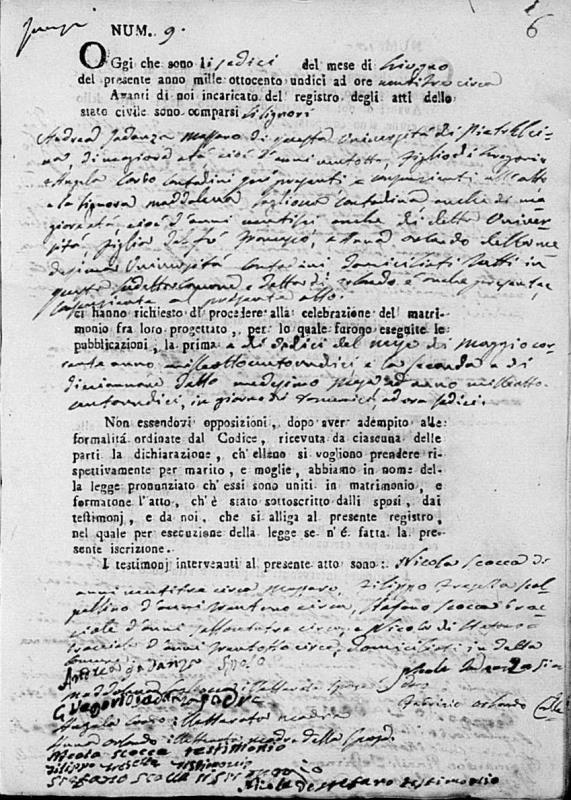 6
NUM. 9.
OGgi che sono li sedici del mese di Giugno
del presente anno mille ottocento undici ad ore ventitre circa
Avanti di noi incaricato del registro degli atti dello
stato civile sono comparsi li Signori
Andrea Iadanza Massaro di questa Università di Pietrelci-
na, di maggiore età cioè d'anni ventotto, figlio di Gregorio
e Angela Contadini quì presenti e consenzienti all'atto
e la Signora Maddalena contadina anche di ma-
giore età, cioè d'anni ventisei anche di detta Univer-
sità, figlia del fù Francesco, e Anna Orlando della me-
desima Università Contadini domiciliati tutti in
questa sudetta Comune e detta di Orlando è anche presente,
e consenziente al presente atto.
ci hanno richiesto di procedere alla celebrazione del matri-
monio fra loro progettato, per lo quale furono eseguite le
pubblicazioni, la prima a dì dodici del mese di Maggio cor-
rente anno milleottocentoundici e la seconda a dì
diciannove detto medesimo mese ed anno milleotto-
centoundici, in giorno di Domenica, ad ora sedici.
Non essendovi opposizioni, dopo aver adempito alle
formalitá ordinate dal Codice, ricevuta da ciascuna delle
parti la dichiarazione, ch'elleno si vogliono prendere ri-
spettivamente per marito, e moglie, abbiamo in nome del-
la legge pronunziato ch'essi sono uniti in matrimonio, e
formatone l'atto, ch'è stato sottoscritto dalli sposi, dai
testimonj, e da noi, che si alliga al presente registro,
nel quale per esecuzione della legge se n'é fatta la pre-
sente iscrizione.
I testimonj intervenuti al presente atto sono: Nicola Scocca di
anni ventitre circa Massaro, Filippo Trasella Scal-
pellino d'anni trentuno circa, Stefano Scocca Brac-
ciale d'anni circa, e Nicola di Stefano
Bracciale d'anni trentotto circa, domiciliati in detta
Comune
Andrea Iadanza Sposo
Maddalena illetterata sposa
Gregorio Iadanza Padre
Fabrizio Orlando
Angela illetterata madre
Anna Orlando illetterata madre della Sposa
Nicola Scocca testimonio
Filippo testimonio
Stefano Scocca testimonio
Nicola de Stefano testimonio